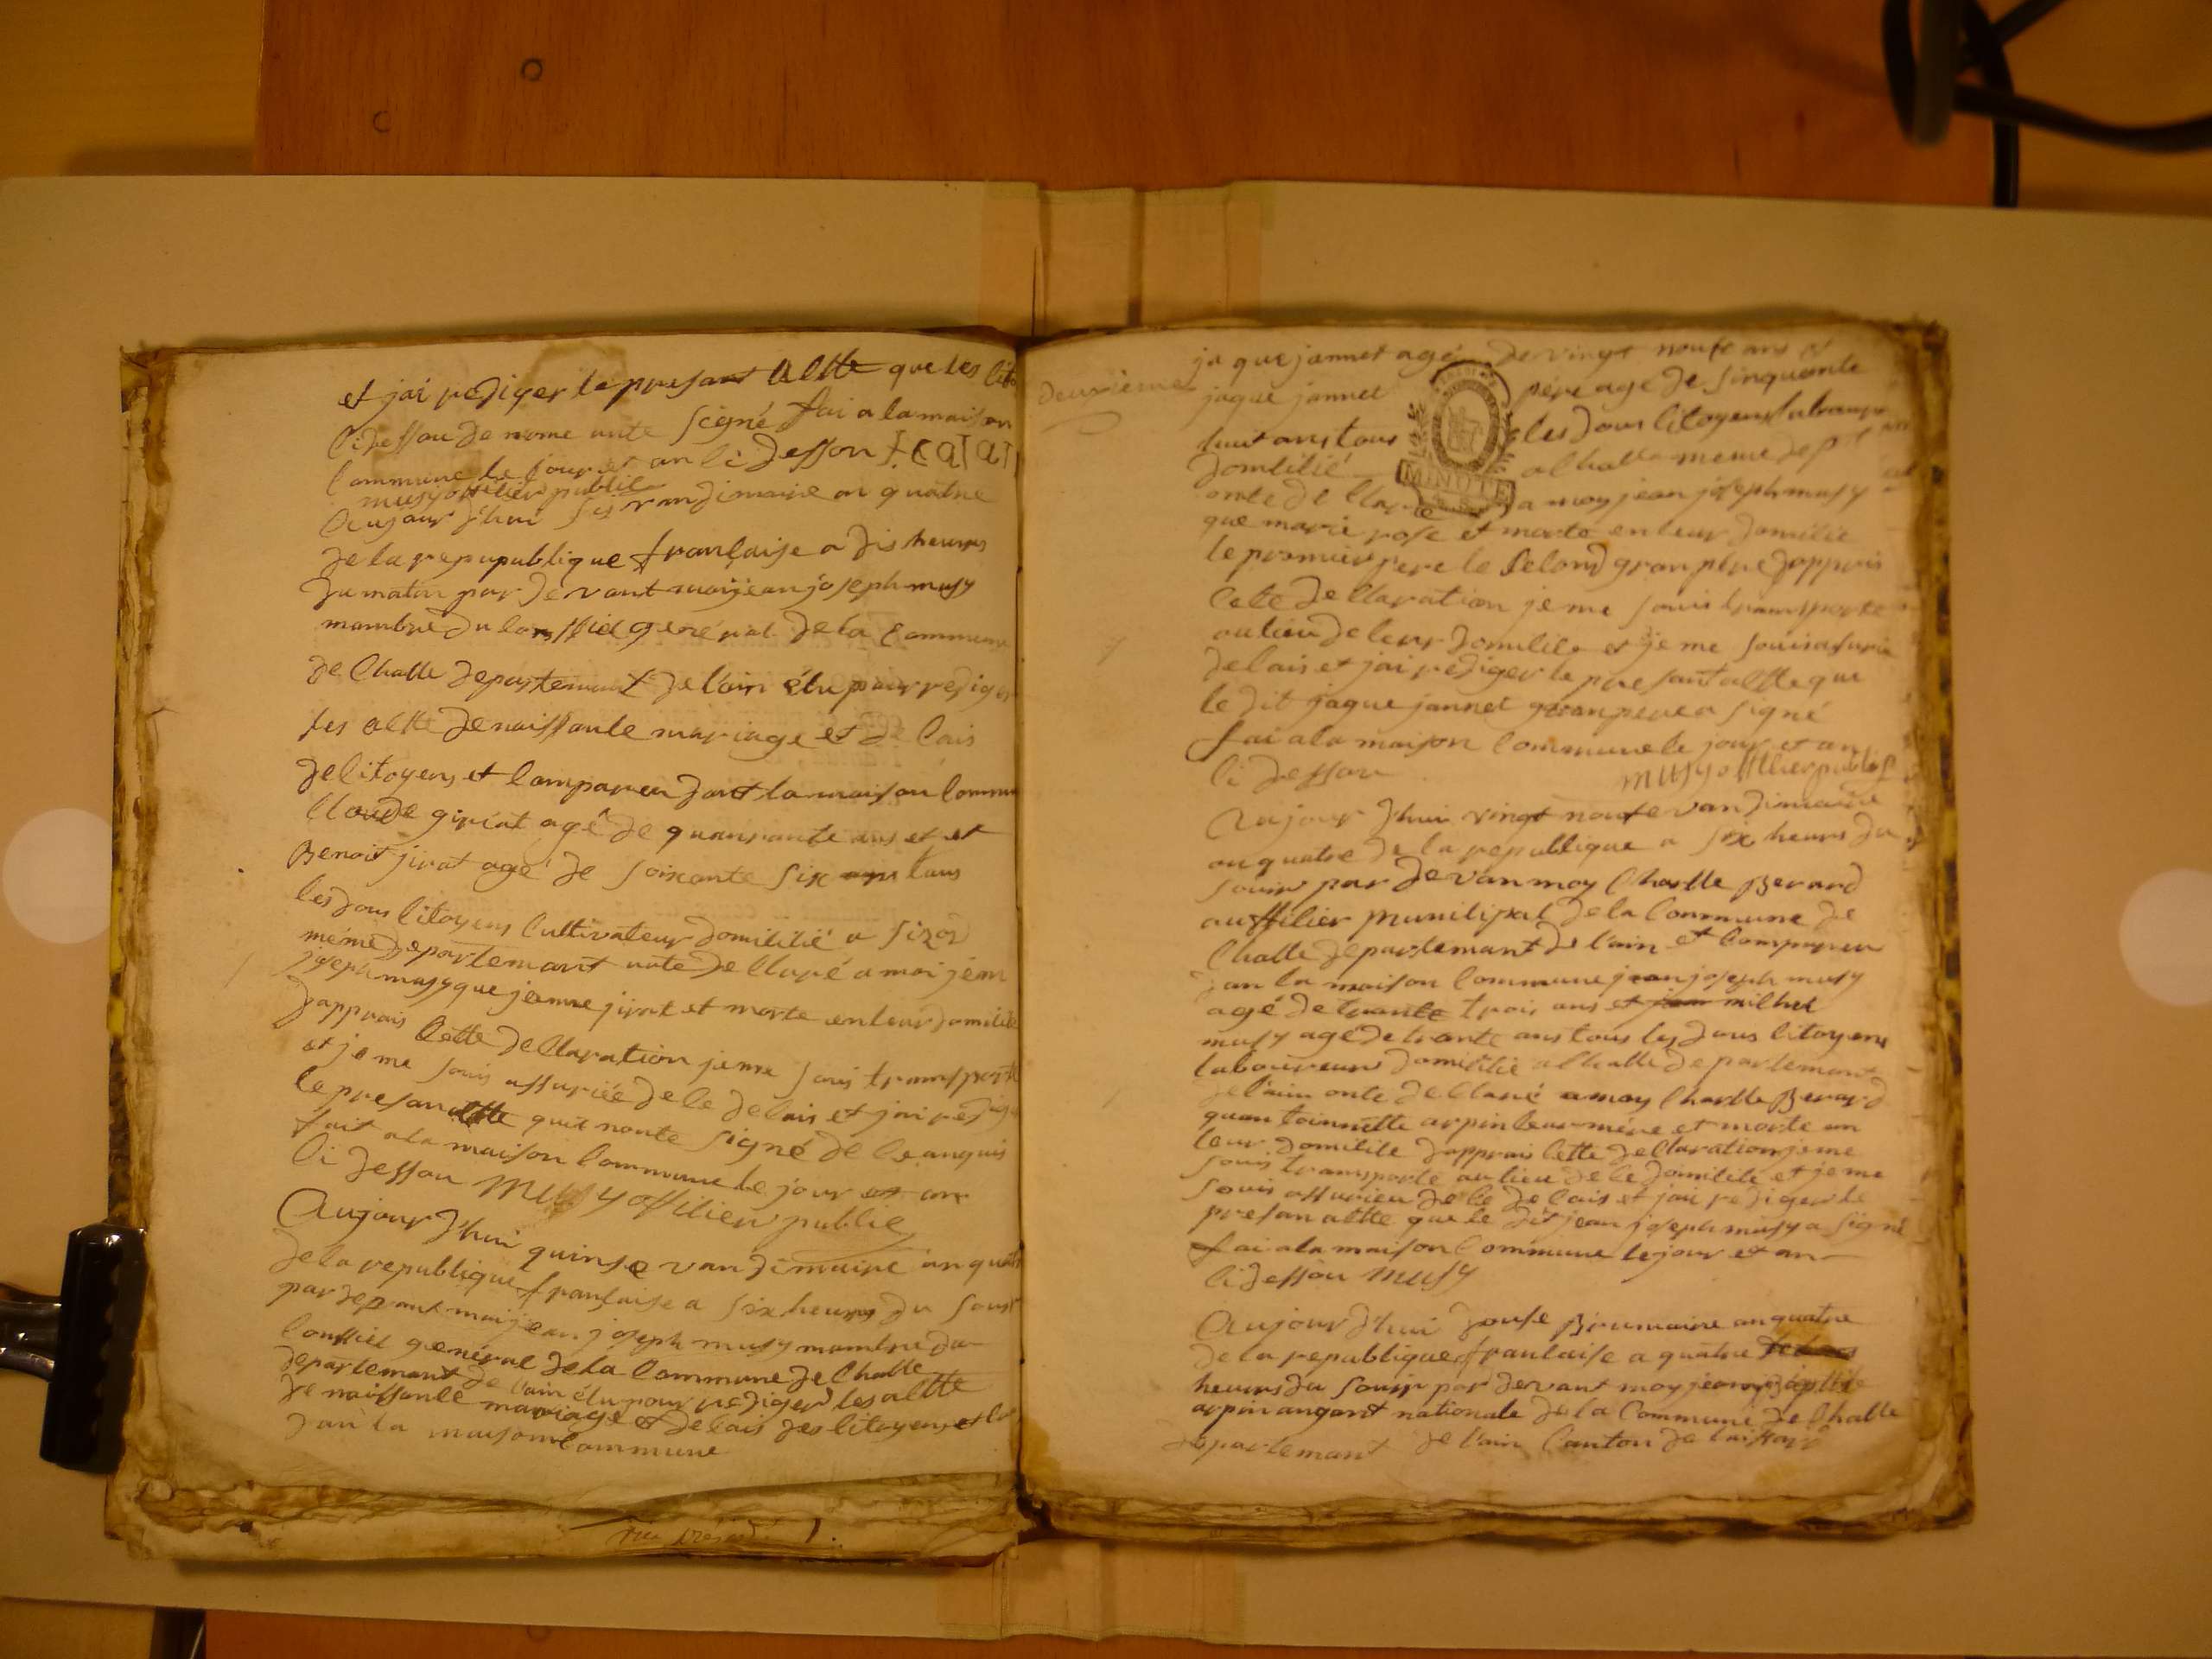 et jai rediger le presant altte que les lito
lidessou de nome unte signé fai a la maison
lommune le jour et an li desson
musy offilier publil
Aujour d'hui sis vandimaire an quatre
de la repupublique franlaise a dis heures
du matin par devant moi jean joseph musy
mambre du lonssiel general de la lommune
de lhalle departemant de l'ain élu pour rediger
les altte de naissanle mariage et de lais
de litoyens et lomparu dant la maison lommu
llaude girat agé de quanrante ans et et
Benoit jirat agé de soixante six ans tous
les dous litoyens lultivateur domililié a sizod
méme departemant unte dellaré a moi jean
joseph musy que jeanne jirat et morte en leur domilile
dapprais lette dellaration je me souis transporté
et je me souis assuriée de le delais et jai rediger
le presan altte quil nonte signé de le anquis
fait a la maison lommune le jour et an
li dessou musy offilier publil
Aujour d'hui quinse vandimaire an quatre
de la republique franlaise a six heures du souir
par devant moi jean joseph musy mambre du
lonssiel general de la lommune de lhalle
departemant de l'ain élu pour rediger les altte
de naissanle mariage et de lais des litoyens et lo
dan la maison lommune
jaque jannet agé de vingt noufe ans et
deuxieme
jaque jannet père agé de sinquante
huit ans tous les dous litoyens labaureur
domlilié a lhalle meme dep
MINUTE
onte dellaré a moy jean joseph musy
que marie rose et morte en leur domilile
le promier pere le selond gran pere dapprais
lete dellaration je me souis transporte
au lieu de leur domilile et je me souis asurie
de lais et jai rediger le presant altte que
le dit jaque jannet granpere a signé
fai a la maison lommune le jour et an
li dessou musy offilier publil
Aujour d'hui vingt noufe vandimaire
an quatre de la republique a six heures du
souir par devan moy lharlle Berard
auffilier munilipal de la lommune de
lhalle departemant de l'ain et lomparu
dan la maison lommune jean joseph musy
agé de trante trois ans et jean milhel
musy agé de trante ans tous les dous litoyens
laboureur domililié a lhalle departemant
de l'ain onte dellaré a moy lharlle Berard
quantoinnette arpin leur mére et morte en
leur domilile dapprais lette dellaration je me
souis transporte au lieu de le domilile et je me
souis assurieu de le delais et jai rediger le
presan altte que le dit jean joseph musy a signé
fai a la maison lommune le jour et an
li dessou musy
Aujour d'hui douse Brumaire an quatre
de la republique franlaise a quatre
heures du souir par devant moy jean baptiste
arpin angant nationale de la lommune de lhalle
departemant de l'ain lanton de